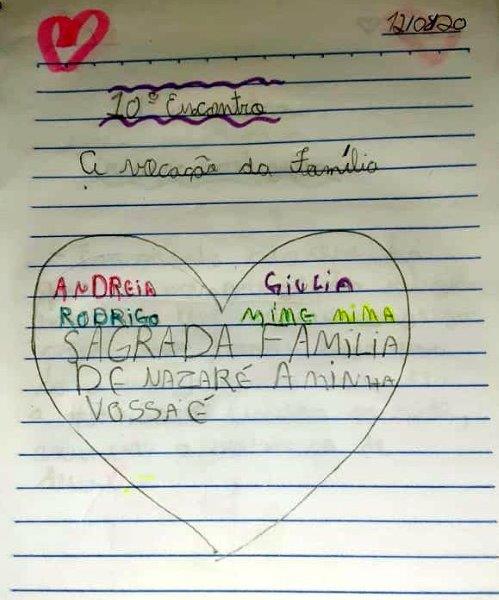 12/08/20
10º Encontro
A vocação da Família
ANDREIA GIULIA
RODRIGO MIMG MIMA
SAGRADA FAMILIA
DE NAZARÉ A MINHA
VOSSA É